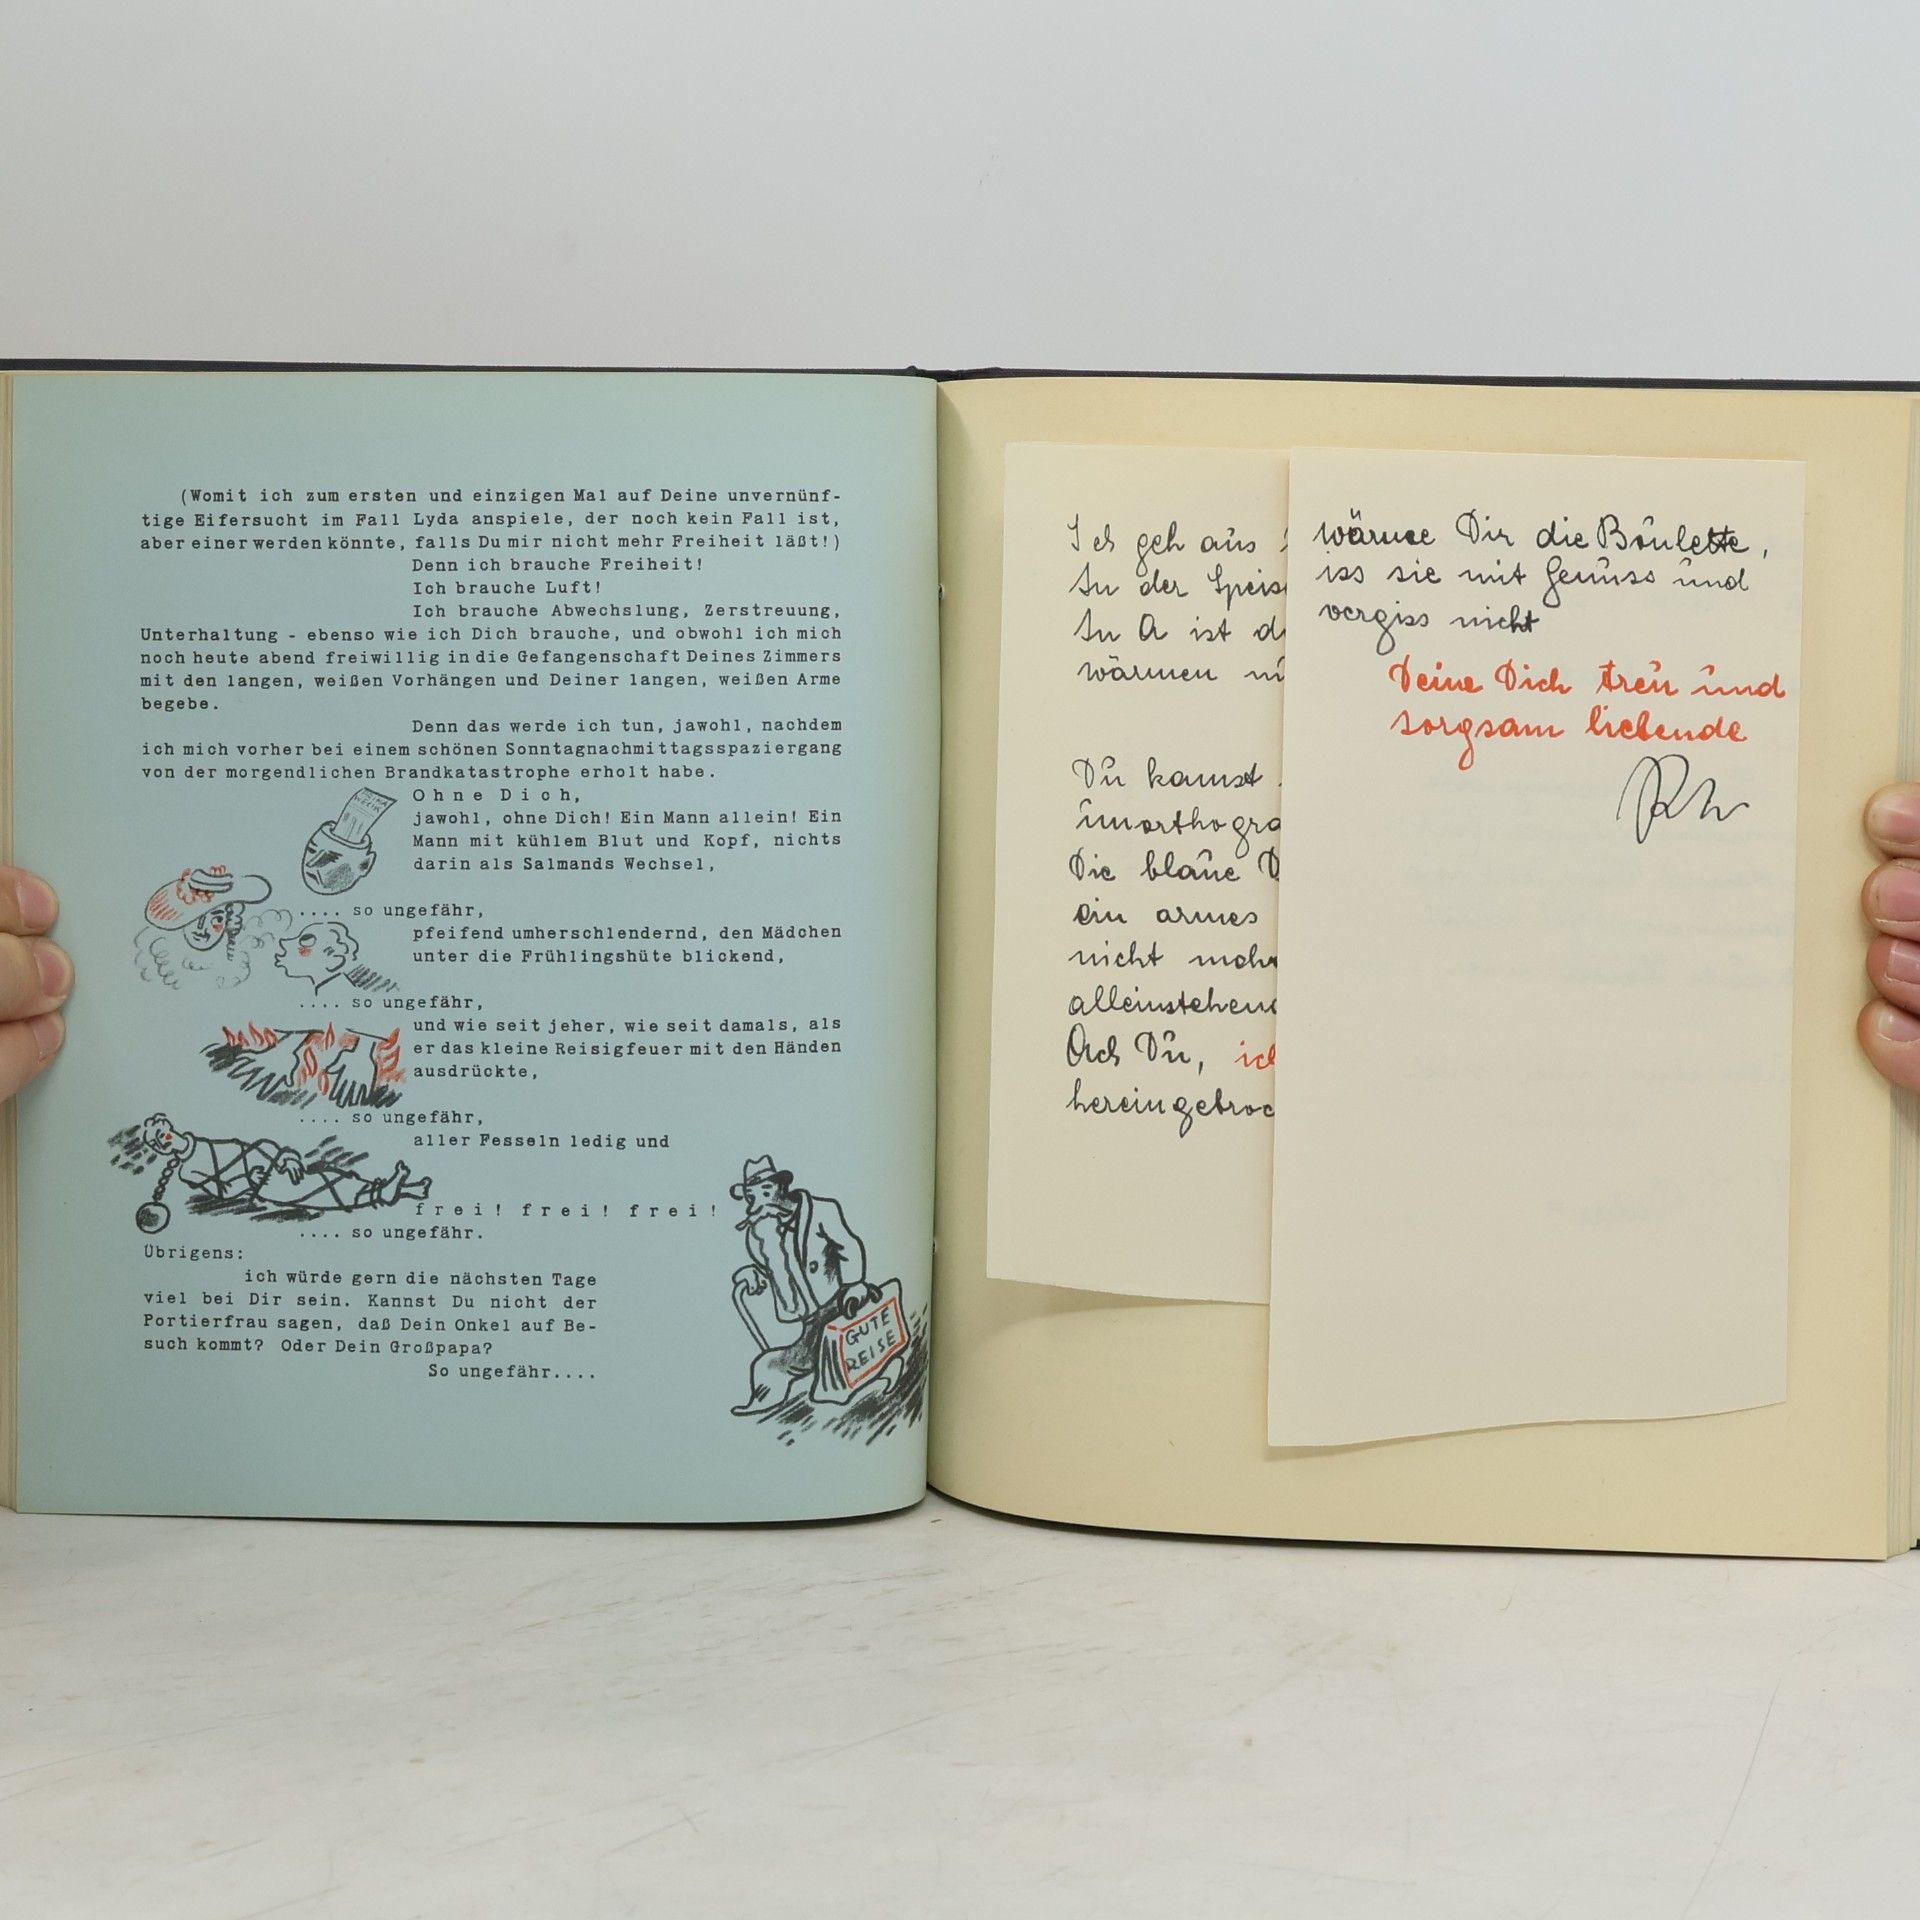 (Womit ich zum ersten und einzigen Mal auf Deine unvernünf-
tige Eifersucht im Fall Lyda anspiele, der noch kein Fall ist,
aber einer werden könnte, falls Du mir nicht mehr Freiheit läßt!)
Denn ich brauche Freiheit!
Ich brauche Luft!
Ich brauche Abwechslung, Zerstreuung,
Unterhaltung - ebenso wie ich Dich brauche, und obwohl ich mich
noch heute abend freiwillig in die Gefangenschaft Deines Zimmers
mit den langen, weißen Vorhängen und Deiner langen, weißen Arme
begebe.
Denn das werde ich tun, jawohl, nachdem
ich mich vorher bei einem schönen Sonntagnachmittagsspaziergang
von der morgendlichen Brandkatastrophe erholt habe.
Ohne Dich,
jawohl, ohne Dich! Ein Mann allein! Ein
Mann mit kühlem Blut und Kopf, nichts
darin als Salmands Wechsel,
.... so ungefähr,
pfeifend umherschlendernd, den Mädchen
unter die Frühlingshüte blickend,
.... so ungefähr,
und wie seit jeher, wie seit damals, als
er das kleine Reisigfeuer mit den Händen
ausdrückte,
.... so ungefähr,
aller Fesseln ledig und
frei! frei! frei!
.... so ungefähr.
Übrigens:
ich würde gern die nächsten Tage
viel bei Dir sein. Kannst Du nicht der
Portierfrau sagen, daß Dein Onkel auf Be-
such kommt? Oder Dein Großpapa?
So ungefähr....
GUTE
REISE
Ich geh aus
In der Speis
In A ist d
wärmen
Du kannst
unorthogra
Die blaue D
ein armes
nicht mehr
alleinstehend
Ach Du, ich
hereingebroc
wärme Dir die Boulette,
iss sie mit Genuss und
vergiss nicht
Deine Dich treu und
sorgsam liebende